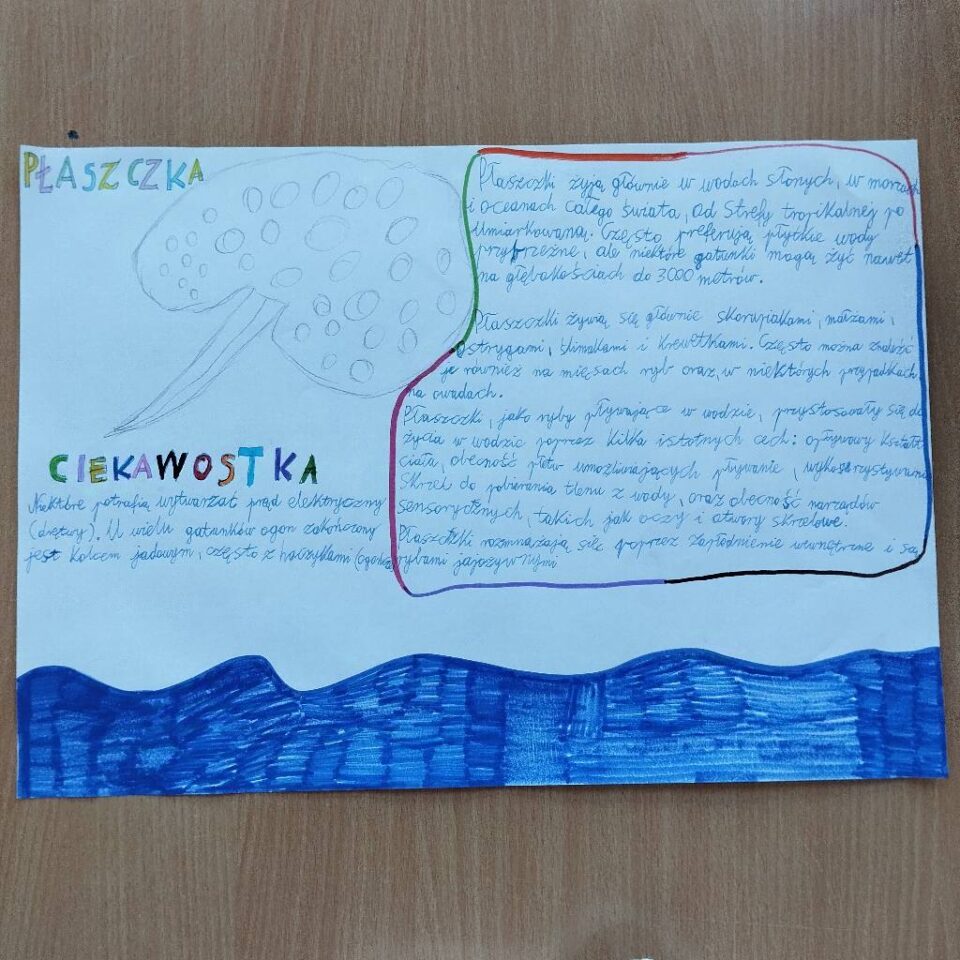 PŁASZCZKA
Płaszczki żyją głównie w wodach słonych, w morzach
i oceanach całego świata, od strefy tropikalnej po
umiarkowaną. Często preferują płytkie wody
przybrzeżne, ale niektóre gatunki mogą żyć nawet
na głębokościach do 3000 metrów.
Płaszczki żywią się głównie skorupiakami, małżami,
ostrygami, ślimakami i krewetkami. Często można znaleźć
je również na mięsach ryb oraz, w niektórych przypadkach
na owadach.
Płaszczki, jako ryby pływające w wodzie, przystosowały się do
życia w wodzie poprzez kilka istotnych cech: opływowy kształt
ciała, obecność płetw umożliwiających pływanie, wykorzystywanie
skrzel do pobierania tlenu z wody, oraz obecność narządów
sensorycznych, takich jak oczy i otwory skrzelowe.
Płaszczki rozmnażają się poprzez zapłodnienie wewnętrzne i są
rybami jajożywnymi
CIEKAWOSTKA
Niektóre potrafią wytwarzać prąd elektryczny
(drętwy). U wielu gatunków ogon zakończony
jest kolcem jadowym, często z haczykami